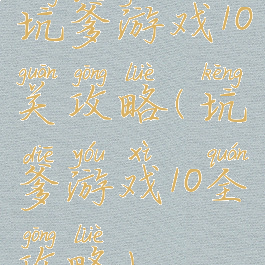 坑爹游戏10
guān gōng lüè kēng
关攻略(坑
diē yóu xì quán
爹游戏10全
gōng lüè
攻略)